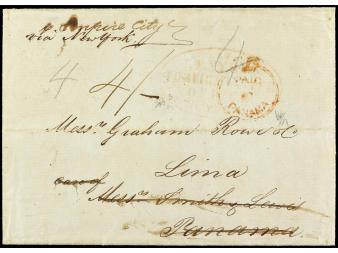 p Empire City
via New York
4 4/-
PAID
PANAMA
Messrs. Graham Rowe & Co
Lima
care of
Messrs. Smith & Lewis
Panama